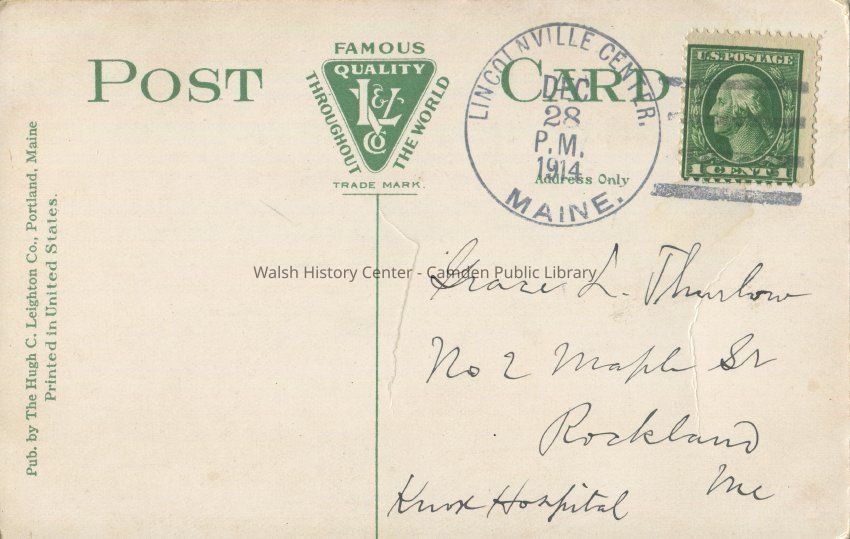 POST CARD
FAMOUS
QUALITY
THROUGHOUT THE WORLD
HLCo
TRADE MARK.
LINCOLNVILLE CENTER.
DEC
28
P.M.
1914
MAINE.
Address Only
U.S. POSTAGE
1 CENT 1
Pub. by The Hugh C. Leighton Co., Portland, Maine
Printed in United States.
Walsh History Center - Camden Public Library
Grace L. Thurlow
No 2 Maple St
Rockland
Me
Knox Hospital